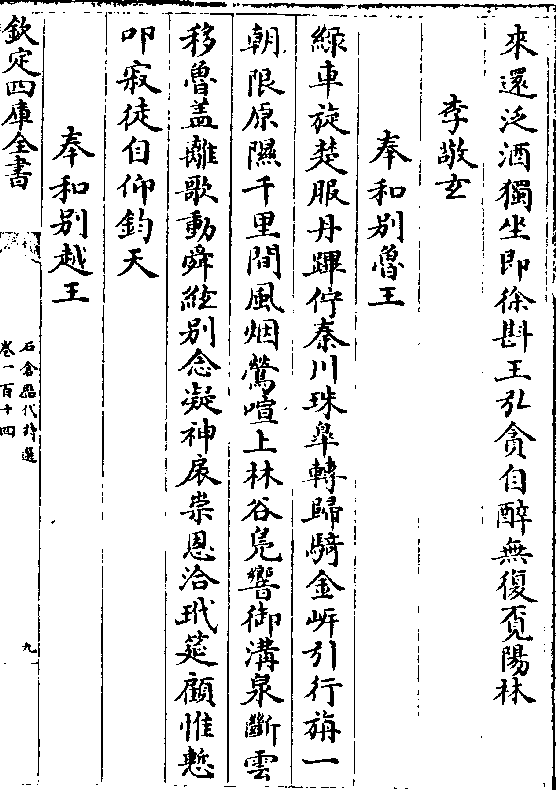 來還泛酒獨坐即徐斟王弘貪自醉無復覓陽林
李敬玄
奉和别魯王
綠車旋楚服丹蹕佇秦川珠臯轉歸騎金岓引行旃一
朝限原隰千里間風烟鶯喧上林谷鳧響御溝泉斷雲
移魯盖離歌動舜絃别念凝神扆崇恩洽玳筵顧惟慙
叩寂徒自仰鈞天
奉和别越王
欽定四庫全書
石倉歷代詩選
卷一百十四
九